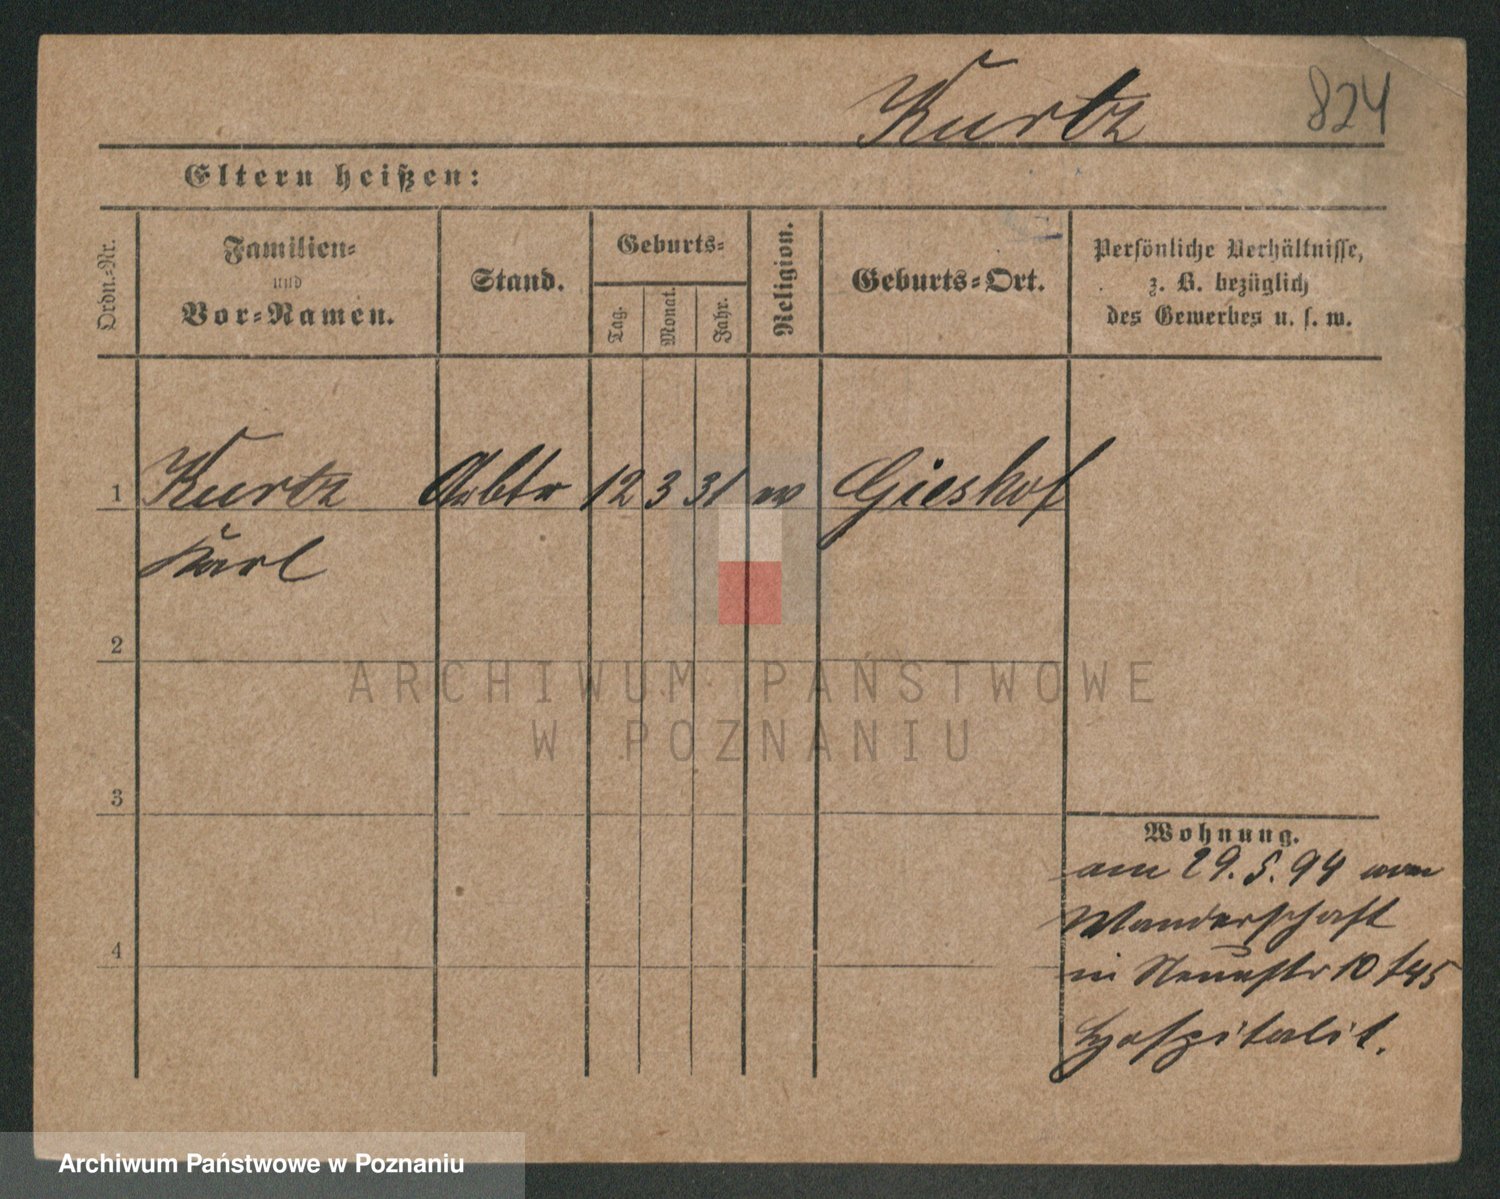 Kurtz 824
Eltern heißen:
Ordn.-Nr.
Familien-
und
Vor-Namen.
Stand.
Geburts-
Tag.
Monat.
Jahr.
Religion.
Geburts-Ort.
Persönliche Verhältnisse,
z. B. bezüglich
des Gewerbes u. s. w.
1 Kurtz Arbtr 12 3 31 Gieshof
Karl
2
ARCHIWUM PAŃSTWOWE
W POZNANIU
3
Wohnung.
am 29. 5. 94 von
Wanderschaft
4
in Neuestr 10
Hospitalit.
Archiwum Państwowe w Poznaniu